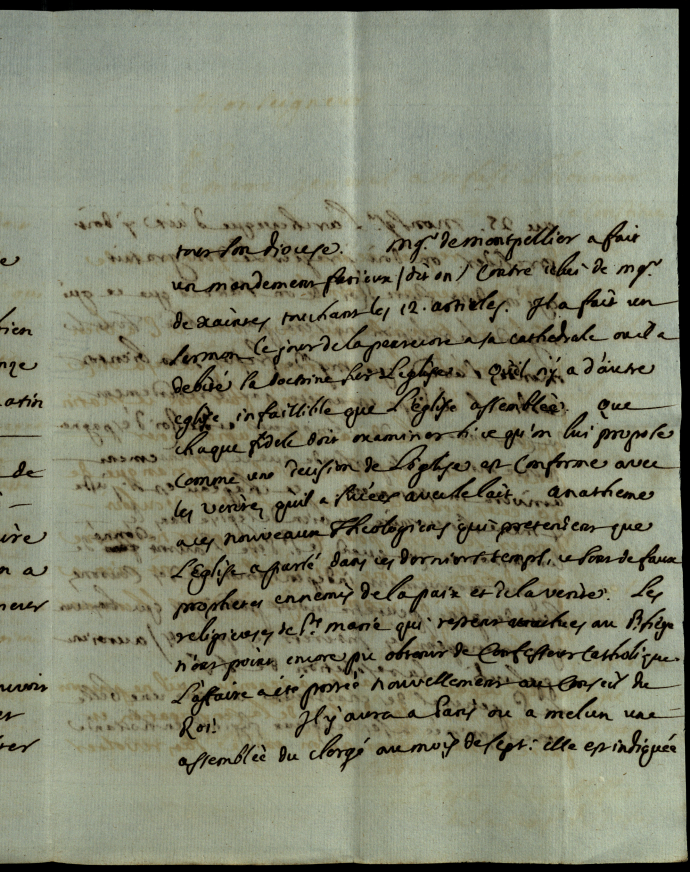 e
bien
ange
latin
de
n a
ouvoir
et
tout son diocese. Mgr. de montpellier a fait
un mandement furieux /dit on/ Contre celui de mgr.
de xaintes touchant les 12. articles. Il a fait un
sermon le jour de la pentecoste a sa cathedrale ou il a
debité sa doctrine sur L'eglise. Qu'il n'y a d'autre
eglise infaillible que L'eglise assemblée. que
chaque fidele doit examiner si ce qu'on lui propose
comme une decision de L'eglise est conforme avec
les verites qu'il a succées avec le lait. anatheme
a ces nouveaux Theologiens qui pretendent que
L'Eglise a parlé dans ces derniers temps, ce sont de faux
prophetes ennemis de la paix et de la verité. Les
religieuses de Ste. marie qui restent au
n'ont point encore pu obtenir de Confesseur Catholique.
L'affaire a eté portée nouvellement au Conseil du
Roi. Il y aura a Paris ou a melun une
assemblée du clergé au mois de sept: elle est indiquée